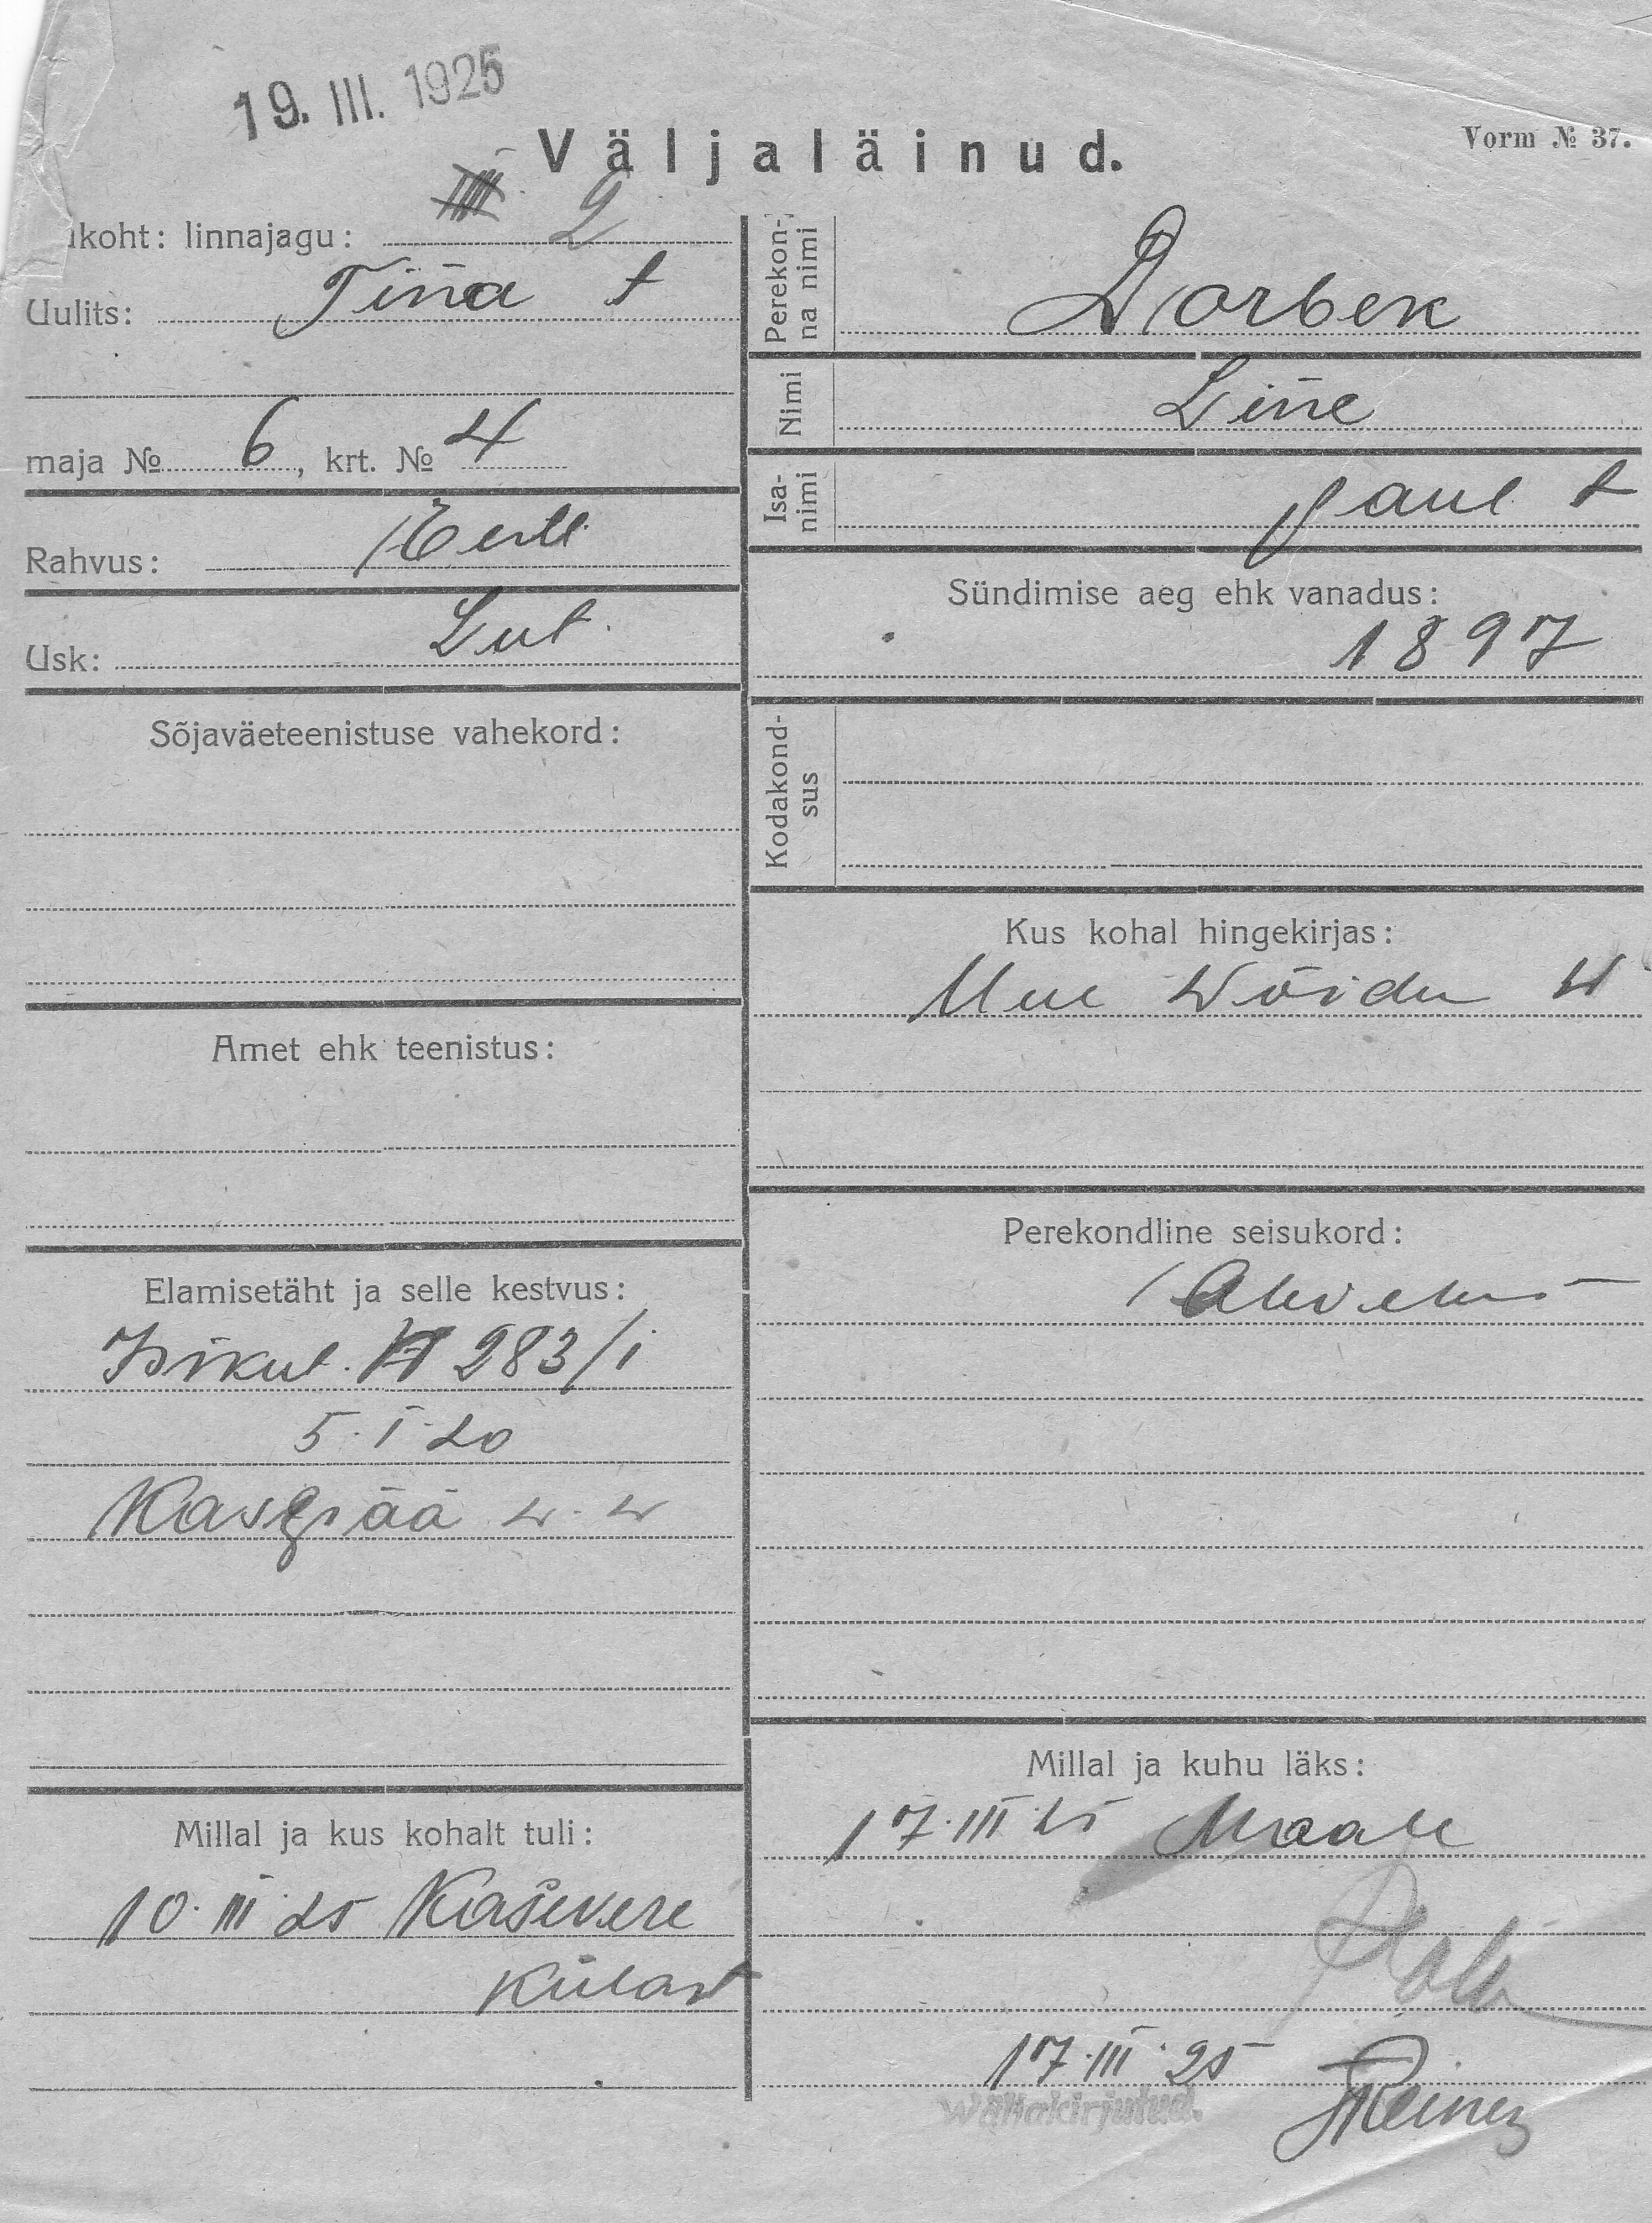 19. III. 1925
Väljaläinud.
Vorm № 37.
koht: linnajagu: 2
Uulits: Tiina t
maja № 6, krt. № 4
Rahvus: Eesti
Usk: Lut.
Sõjaväeteenistuse vahekord:
Amet ehk teenistus:
Elamisetäht ja selle kestvus:
Isikut. 283/i
5. I 20
w. w
Millal ja kus kohalt tuli:
10. III 25 Kasevere
Külast
Perekonna nimi
Dorbek
Nimi
Liine
Isanimi
Jaul t
Sündimise aeg ehk vanadus:
1897
Kodakondsus
Kus kohal hingekirjas:
Uue Wõidu W
Perekondline seisukord:
Millal ja kuhu läks:
17. III 25 Maale
17. III. 25
Wäljakirjutud.